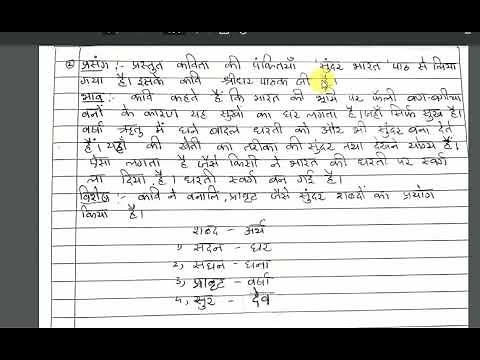 ② प्रसंग :- प्रस्तुत कविता की पंक्तियाँ 'सुंदर भारत' पाठ से लिया
गया है। इसके कवि श्रीधर पाठक जी हैं।
भाव :- कवि कहते हैं कि भारत की भूमि पर फैली बाग-बगीचा
वनों के कारण यह सुखों का घर लगता है। जहाँ सिर्फ सुख है।
वर्षा ऋतु में घने बादल धरती को और भी सुंदर बना देते
हैं। यहाँ की खेती का तरीका की सुंदर तथा देखने योग्य है।
ऐसा लगता है जैसे किसी ने भारत की धरती पर स्वर्ग
ला दिया है। धरती स्वर्ग बन गई है।
विशेष :- कवि ने वनालि, प्रावृट जैसे सुंदर शब्दों का प्रयोग
किया है।
शब्द - अर्थ
1, सदन - घर
2, सघन - घना
3, प्रावृट - वर्षा
4, सुर - देव